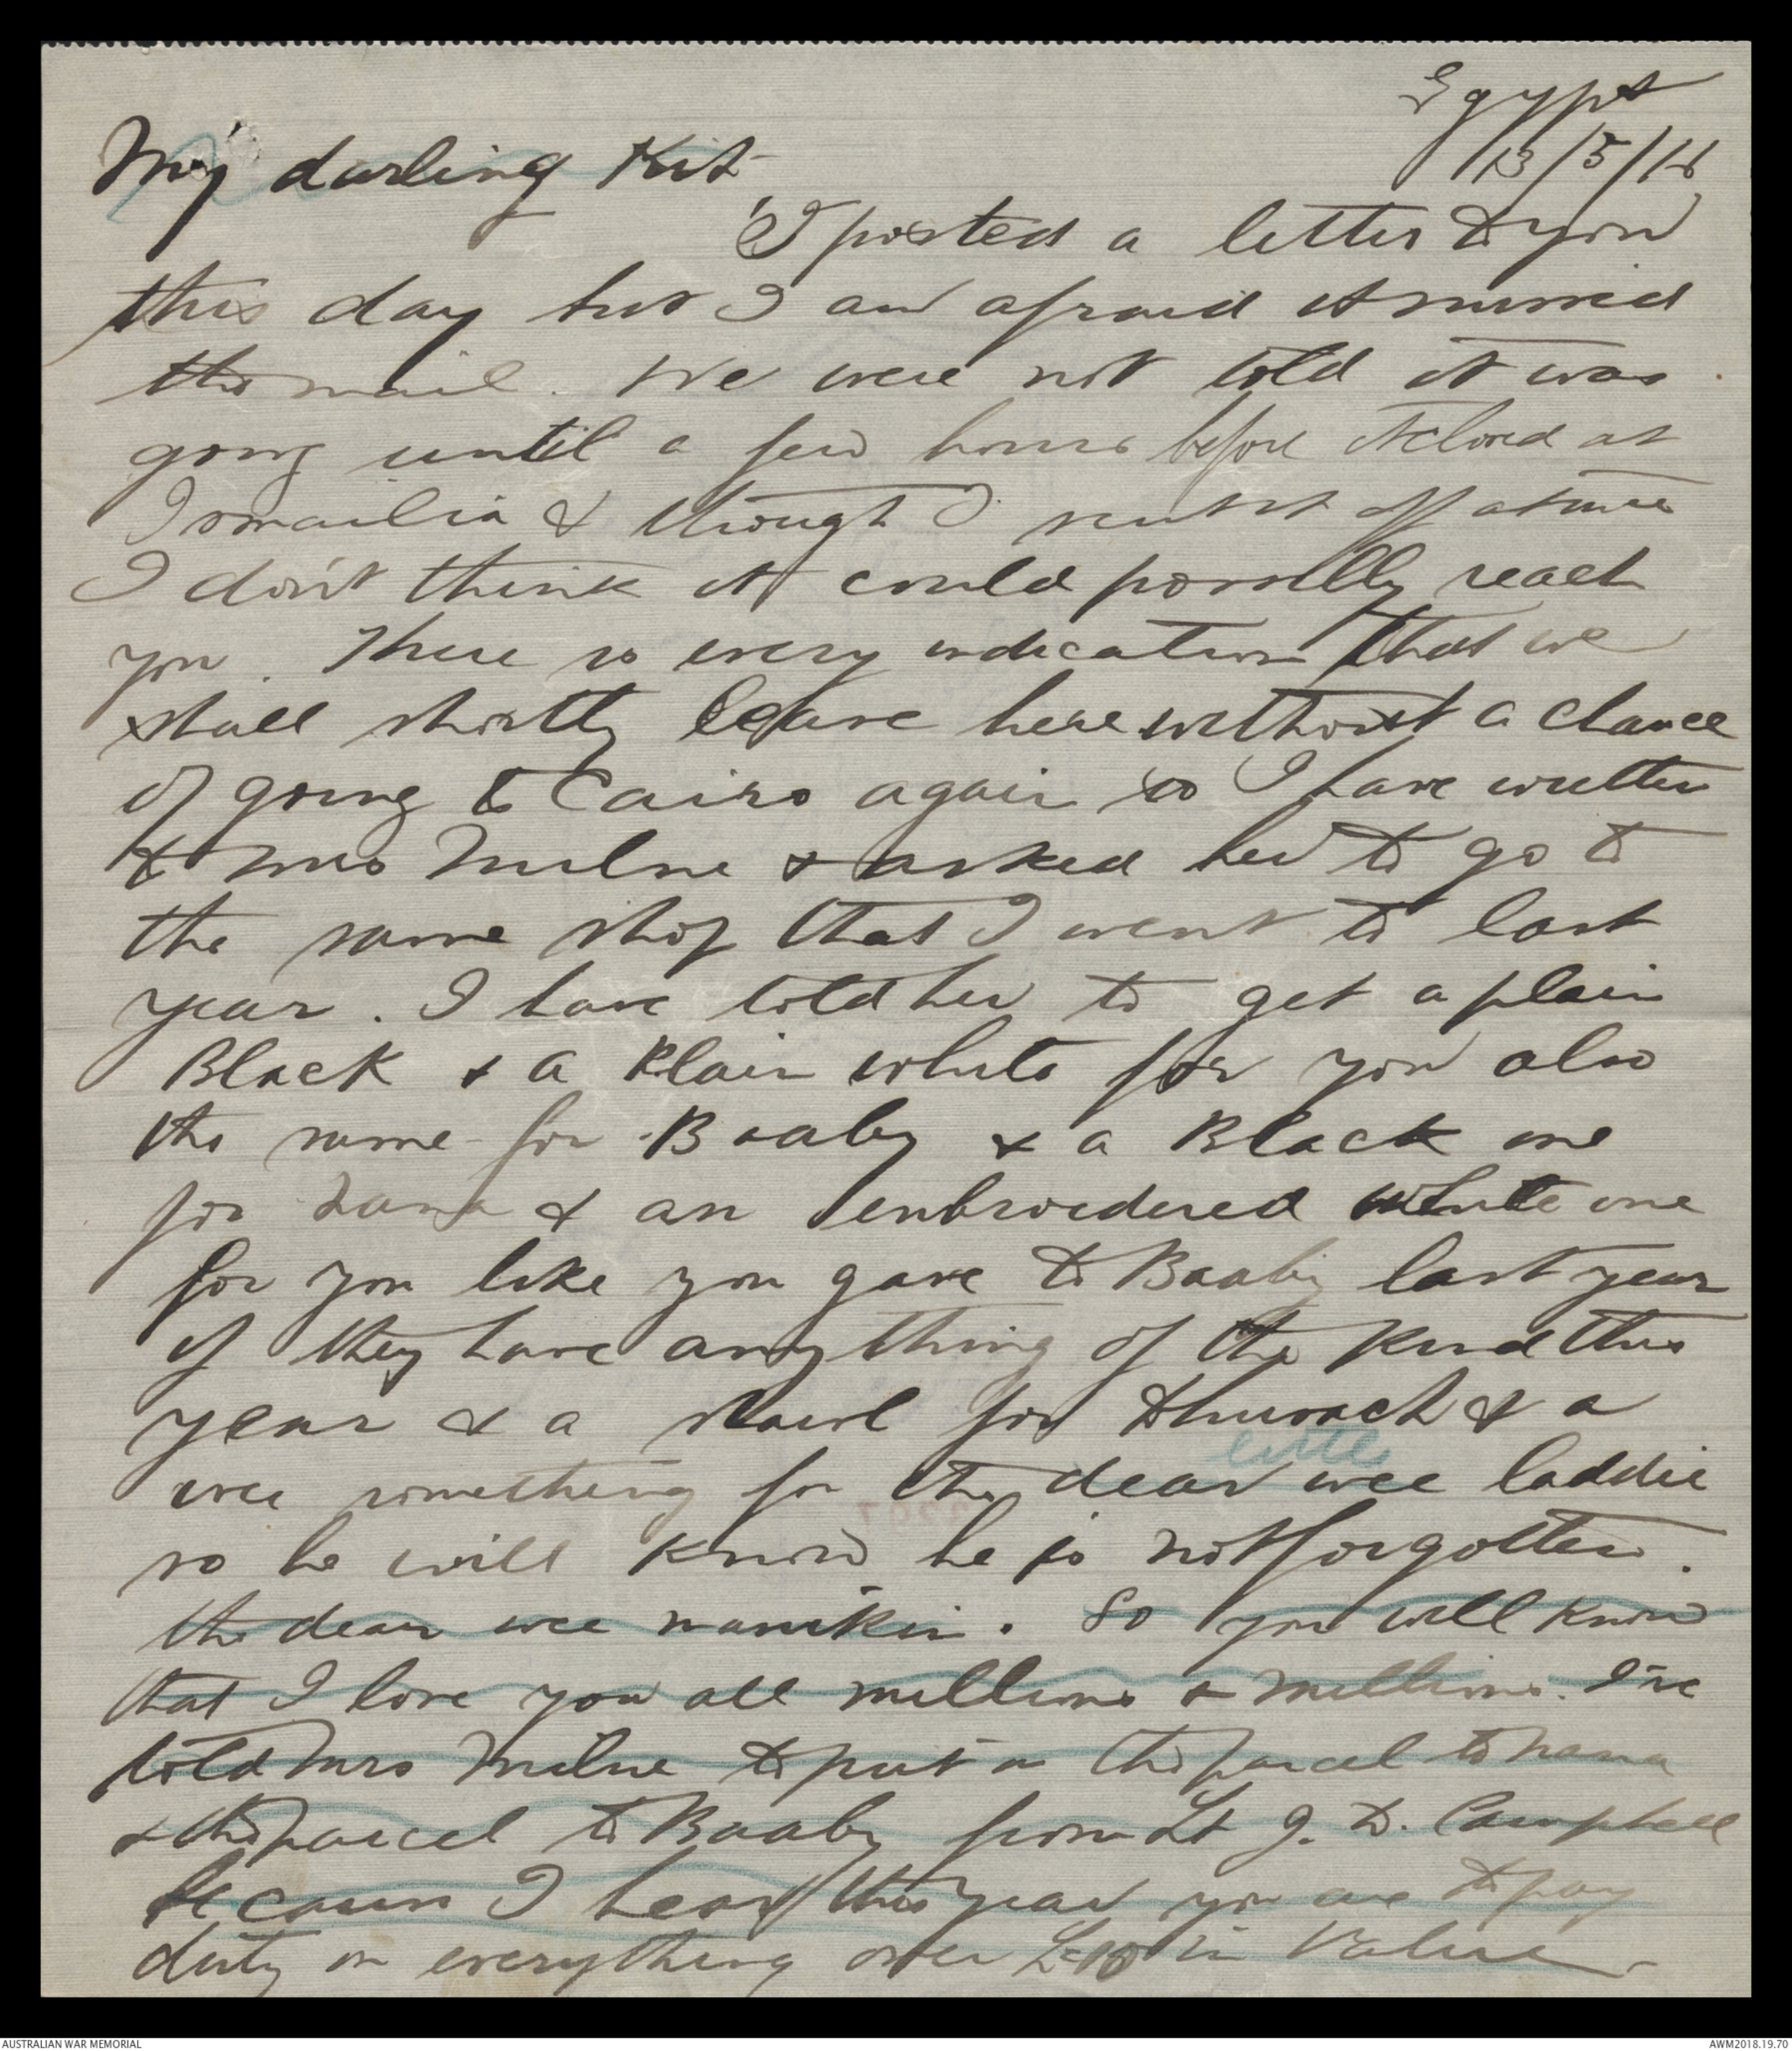 Egypt
13/5/16
My darling Kit
I posted a letter to you
this day but I am afraid it missed
the mail. We were not told it was
going until a few hours before it closed at
Ismailia & though I sent it off at once
I don't think it could possibly reach
you. There is every indication that we
shall shortly leave here without a chance
of going to Cairo again so I have written
to Mrs Milne & asked her to go to
the same shop that I went to last
year. I have told her to get a plain
Black & a Plain white for you also
the same for Baaby & a Black one
for Nana & an embroidered white one
for you like you gave to Baaby last year
if they have anything of the kind this
year & a shawl for & a
little
wee something for the dear wee laddie
so he will know he is not forgotten.
the dear wee manikin. So you will know
that I love you all millions & millions. I've
told Mrs Milne to put on the parcel to Nana
& the parcel to Baaby from Lt G. D. Campbell
because I hear this year you are to pay
duty on everything over £10 in value.
AUSTRALIAN WAR MEMORIAL
AWM2018.19.70